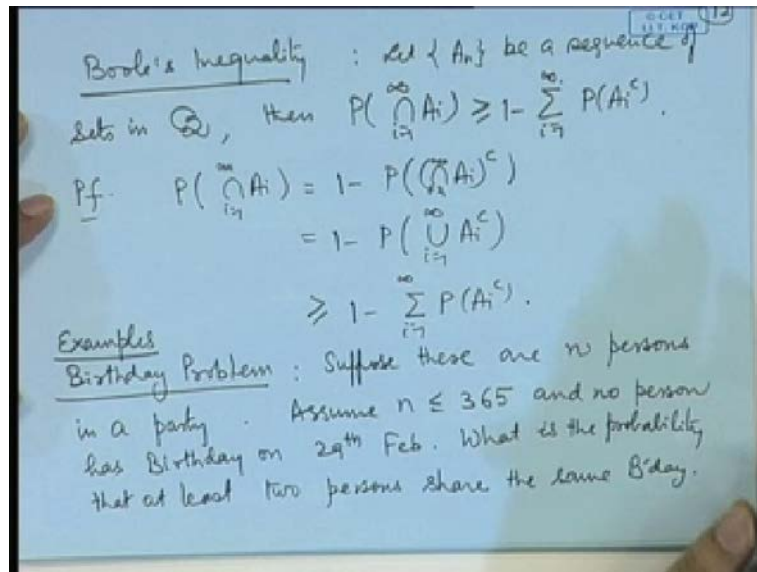 © CET
I.I.T. KGP
12
Boole's Inequality : Let { An } be a sequence of
sets in B, then P( ∩_{i=1}^{∞} Ai ) ≥ 1 - ∑_{i=1}^{∞} P(Ai^c) .
Pf. P( ∩_{i=1}^{∞} Ai ) = 1 - P( (∩ Ai)^c )
= 1 - P( ∪_{i=1}^{∞} Ai^c )
≥ 1 - ∑_{i=1}^{∞} P(Ai^c) .
Examples
Birthday Problem : Suppose there are n persons
in a party . Assume n ≤ 365 and no person
has Birthday on 29th Feb. What is the probability
that at least two persons share the same B'day.